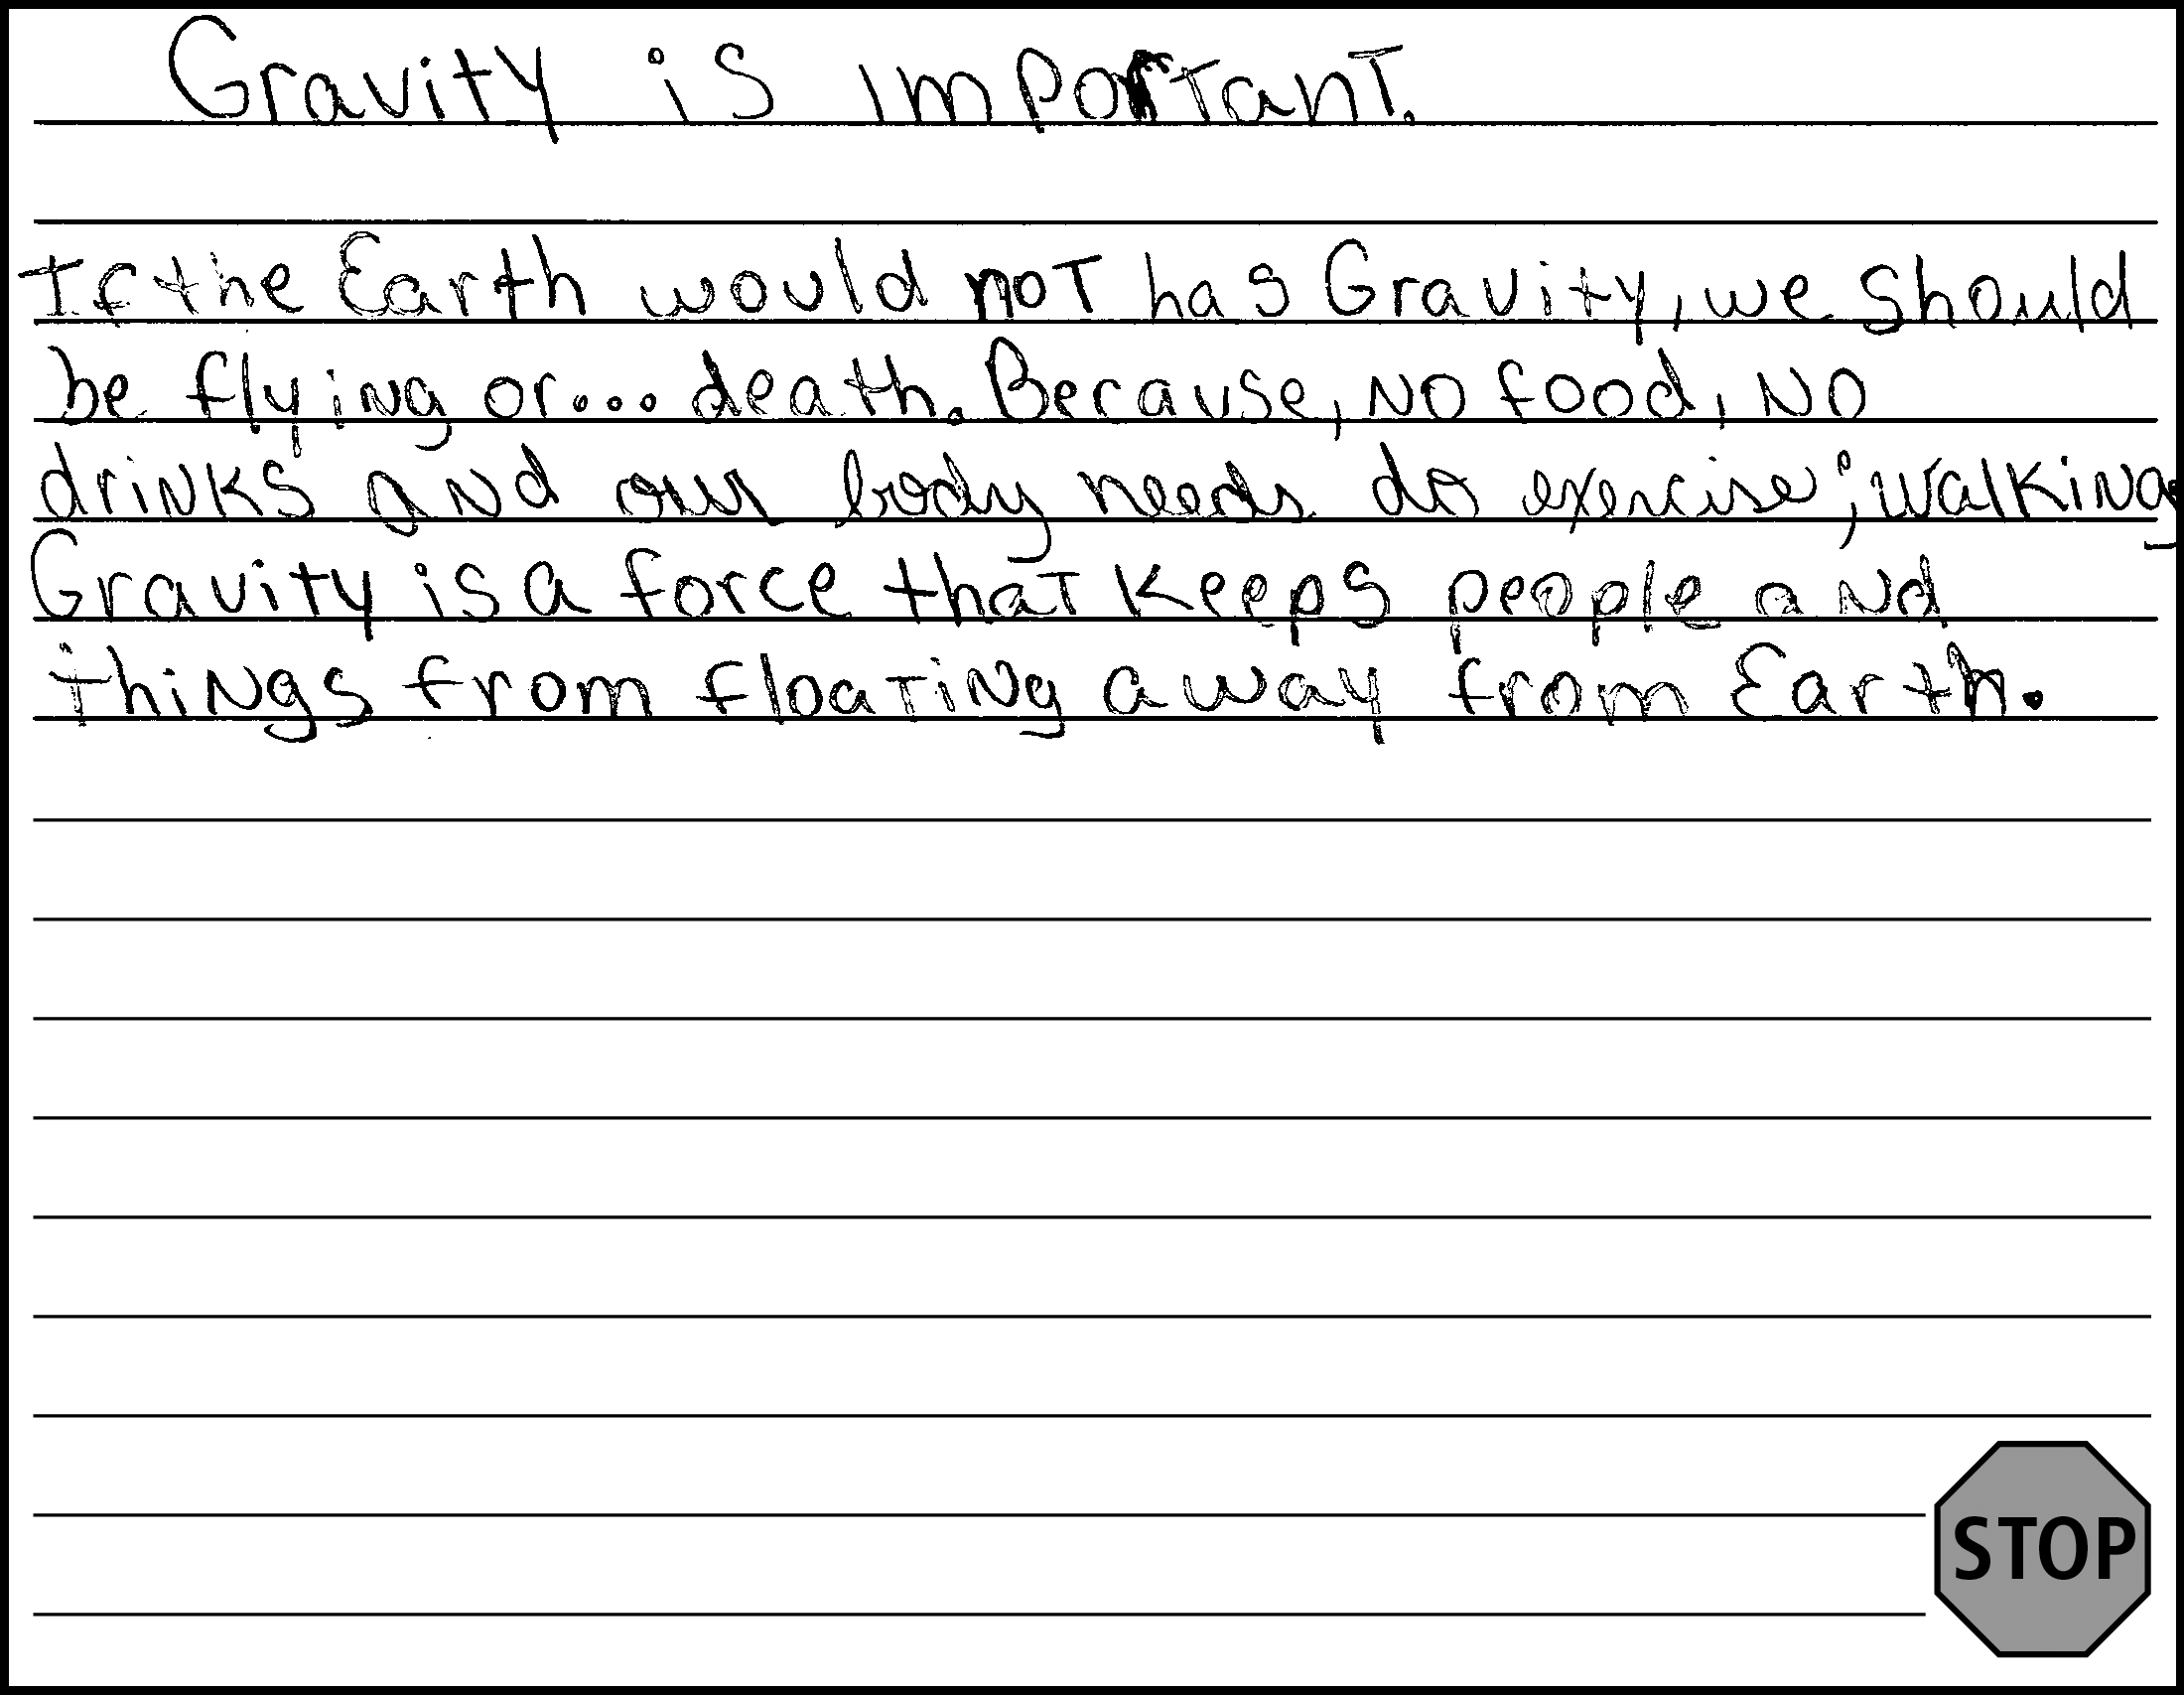 Gravity is important.
If the Earth would not has Gravity, we should
be flying or... death. Because, No food, No
drinks and our body needs do exercise; walking
Gravity is a force that keeps people and
things from floating away from Earth.
STOP